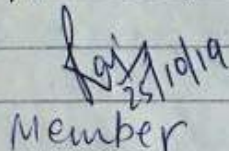 25/10/19
Member